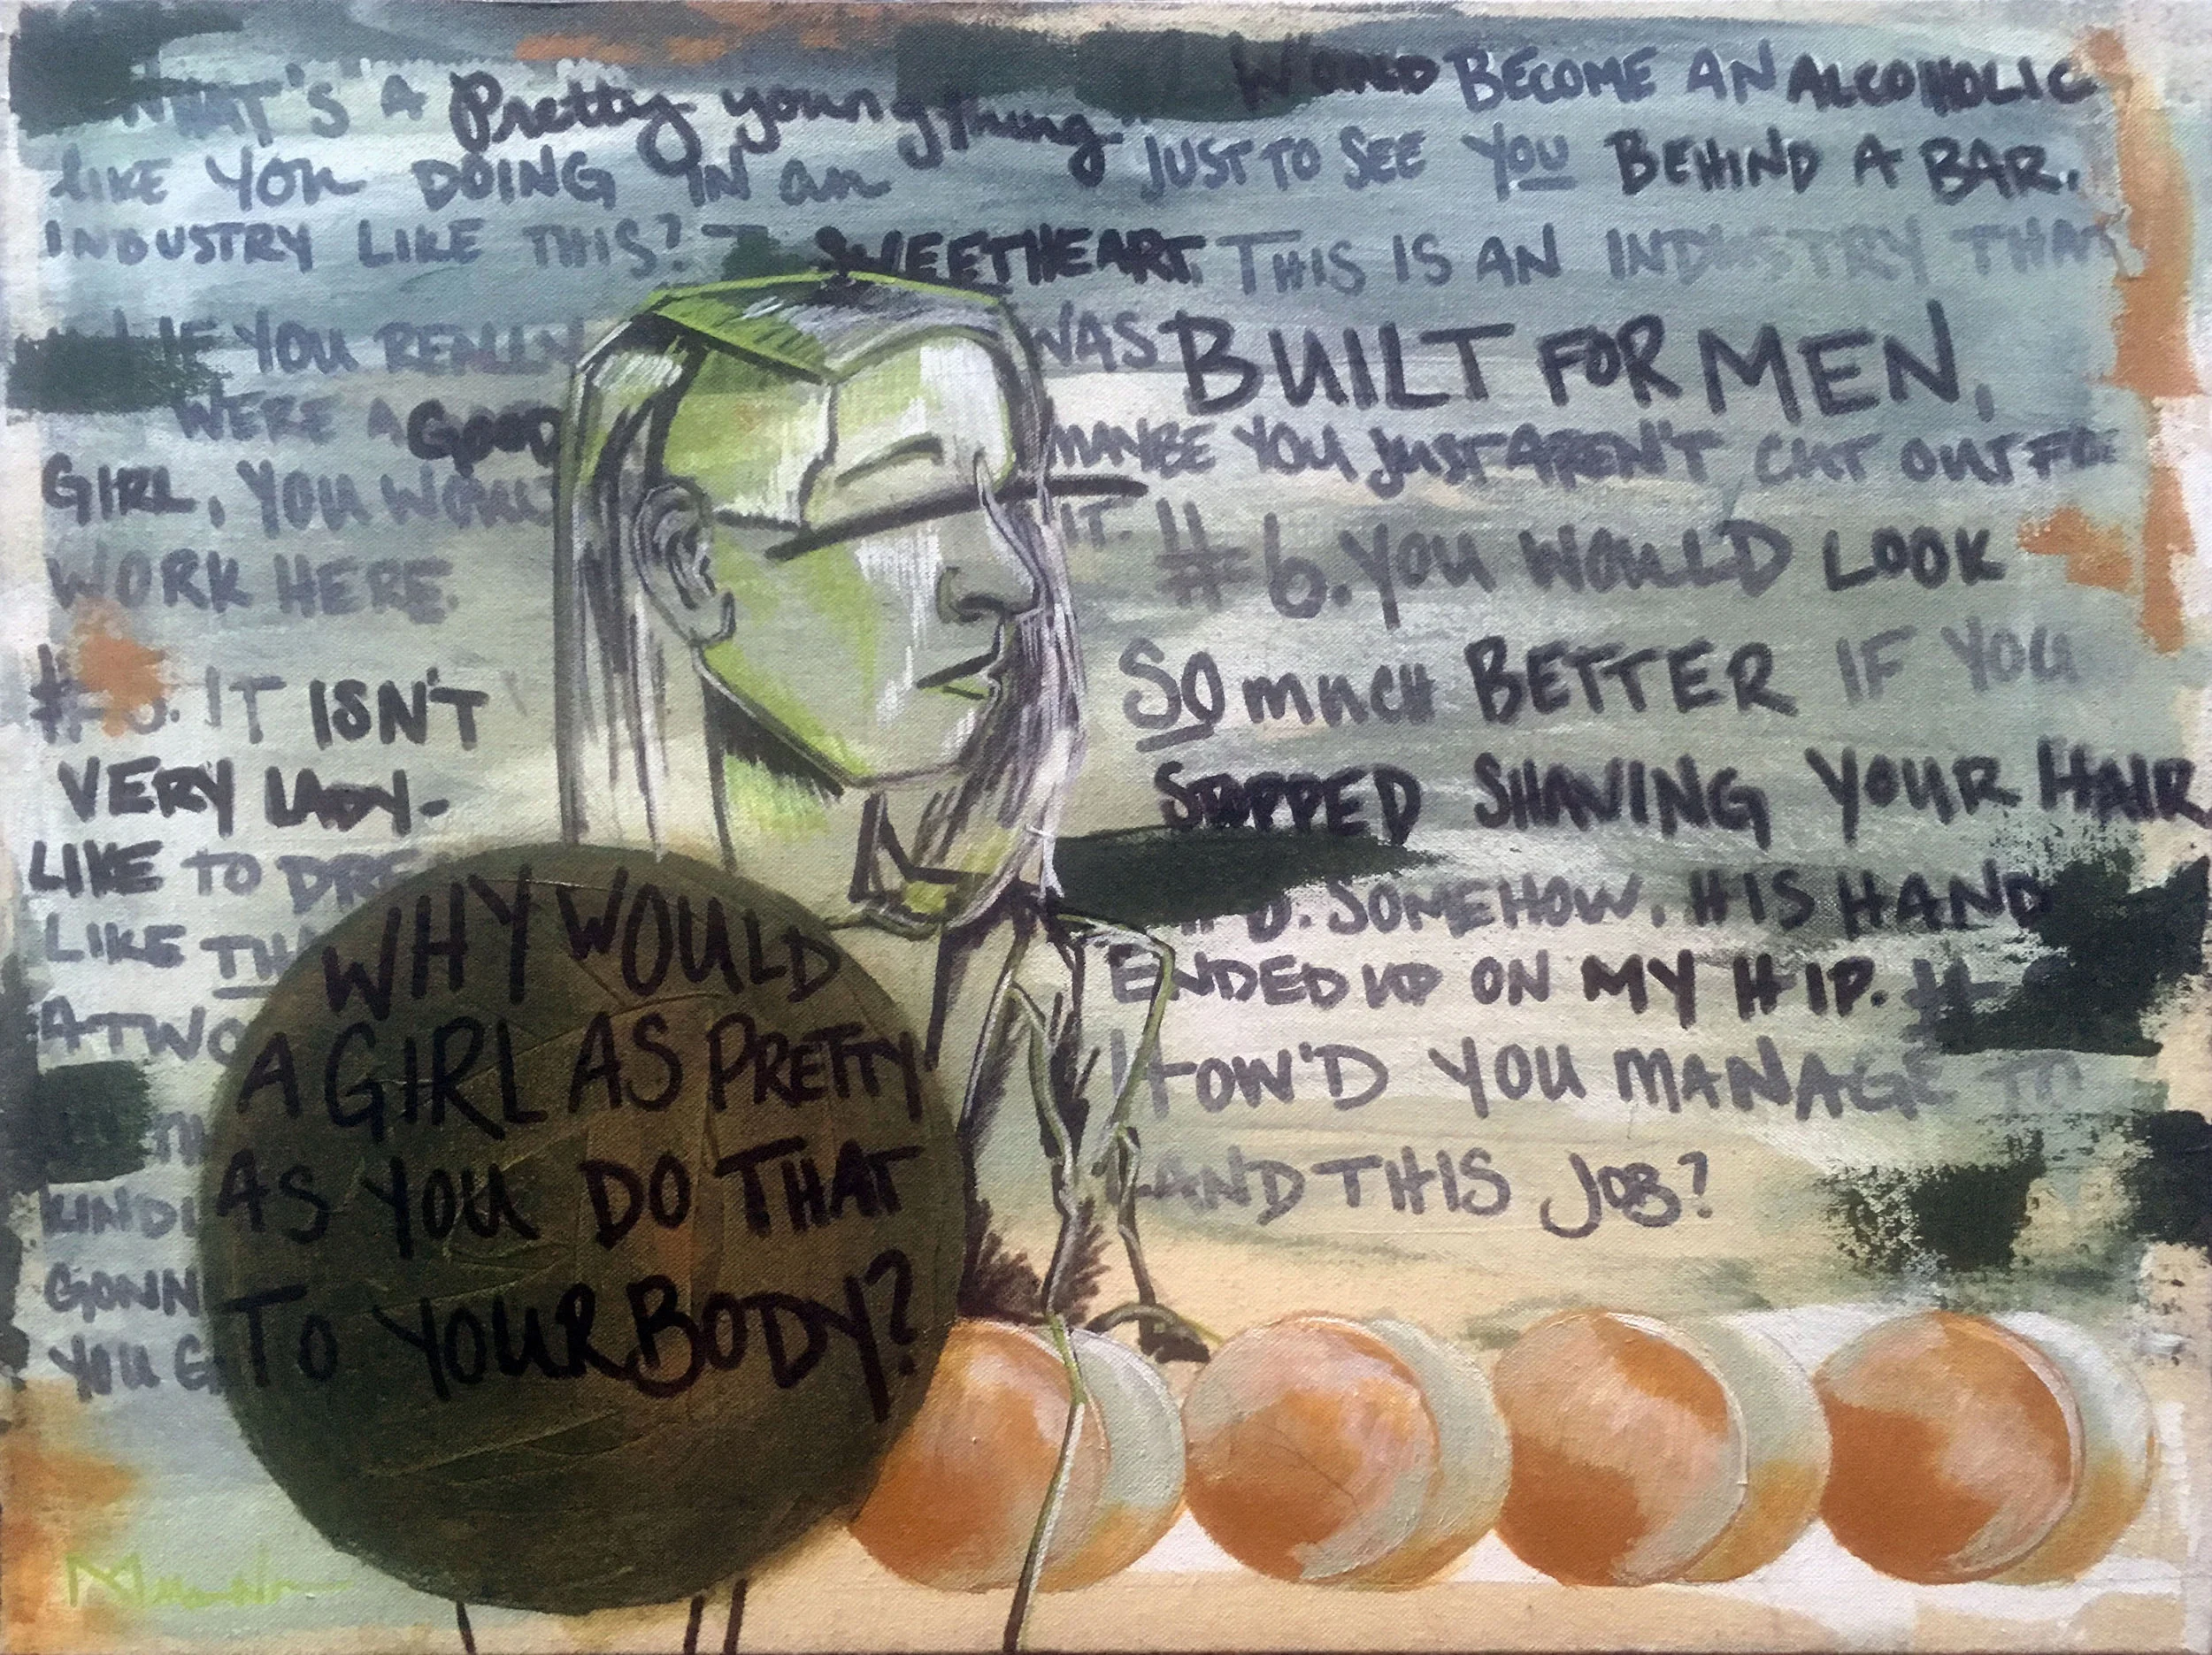 WHAT'S A Pretty young thing
LIKE YOU DOING IN an
INDUSTRY LIKE THIS?
IF YOU REALLY
WERE A GOOD
GIRL, YOU WOUL
WORK HERE.
IT ISN'T
VERY LADY-
LIKE TO DRE
LIKE TH
A TWO
KIND
GONN
YOU G
WHY WOULD
A GIRL AS PRETTY
AS YOU DO THAT
TO YOUR BODY?
WOULD BECOME AN ALCOHOLIC
JUST TO SEE YOU BEHIND A BAR.
SWEETHEART. THIS IS AN INDUSTRY THAT
WAS BUILT FOR MEN,
MAYBE YOU JUST AREN'T CUT OUT FOR
IT. #6. YOU WOULD LOOK
SO MUCH BETTER IF YOU
STOPPED SHAVING YOUR HAIR
SOMEHOW, HIS HAND
ENDED UP ON MY HIP. #
HOW'D YOU MANAGE TO
LAND THIS JOB?